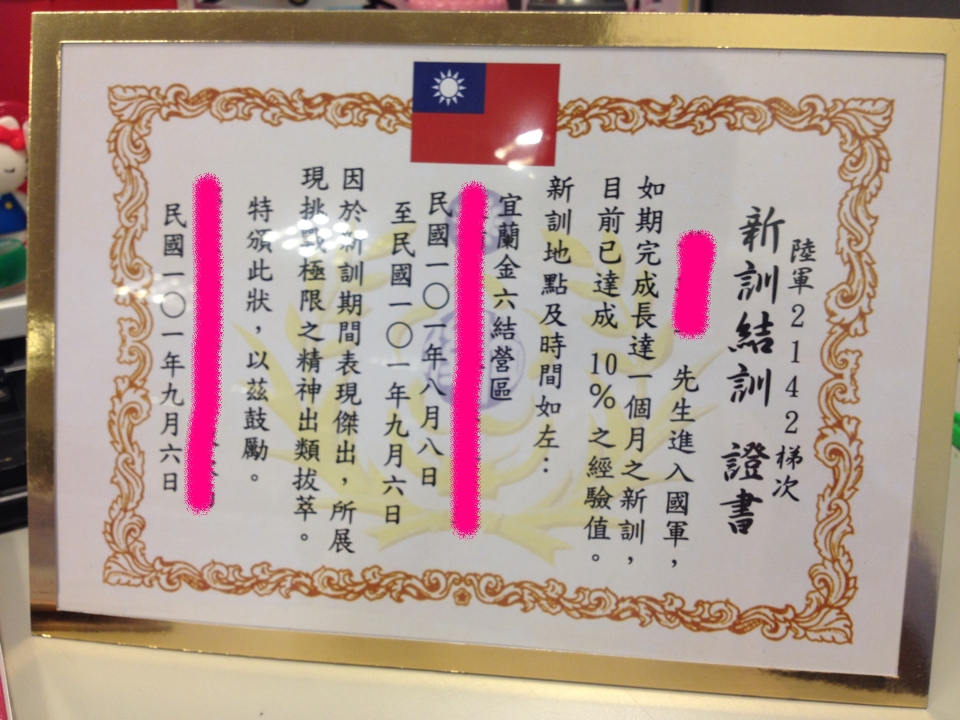 陸軍2142梯次
新訓結訓 證書
先生進入國軍，
如期完成長達一個月之新訓，
目前已達成 10% 之經驗值。
新訓地點及時間如左：
宜蘭金六結營區
民國一〇一年八月八日
至民國一〇一年九月六日
因於新訓期間表現傑出，所展
現挑戰極限之精神出類拔萃。
特頒此狀，以茲鼓勵。
民國一〇一年九月六日